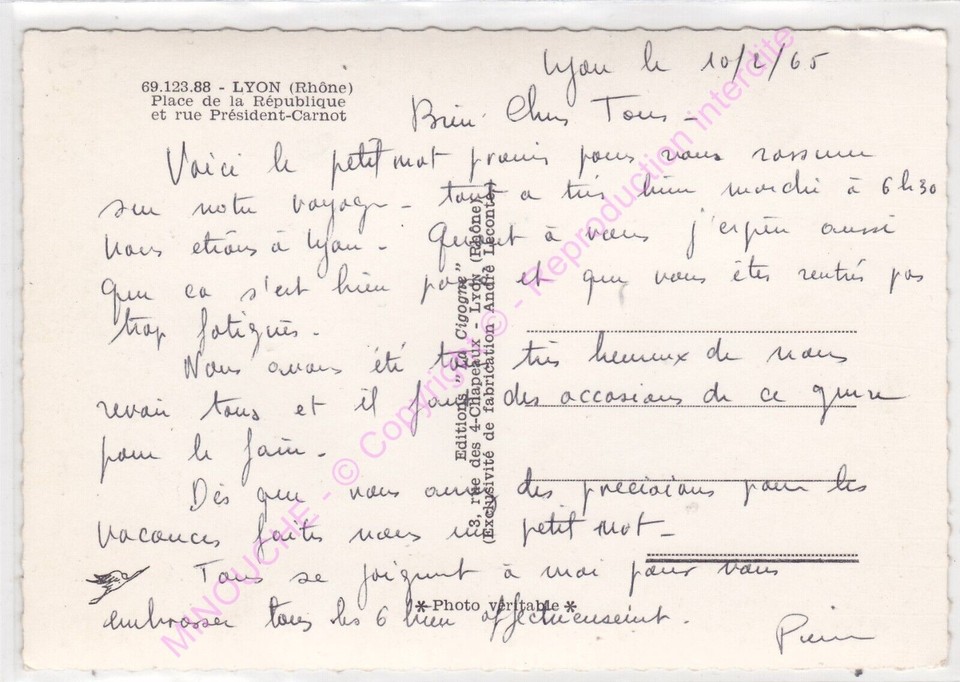 Lyon le 10/2/65
69.123.88 - LYON (Rhône)
Place de la République
et rue Président-Carnot
Bien Chers Tous -
Voici le petit mot promis pour vous rassurer
sur notre voyage - tout a très bien marché à 6h30
nous étions à Lyon - Quant à vous j'espère aussi
que ca s'est bien passé et que vous êtes rentrés pas
trop fatigués -
Nous avons été tous très heureux de nous
revoir tous et il faut des occasions de ce genre
pour le faire -
Dès que vous aurez des précisions pour les
vacances faites nous un petit mot -
Tous se joignent à moi pour vous
embrasser tous les 6 bien affectueusement.
Pierre
Editions "La Cigogne"
3, rue des 4-Chapeaux - LYON (Rhône)
(Exclusivité de fabrication André Leconte)
*Photo véritable*
MINOUCHE - © Copyright © - Reproduction interdite